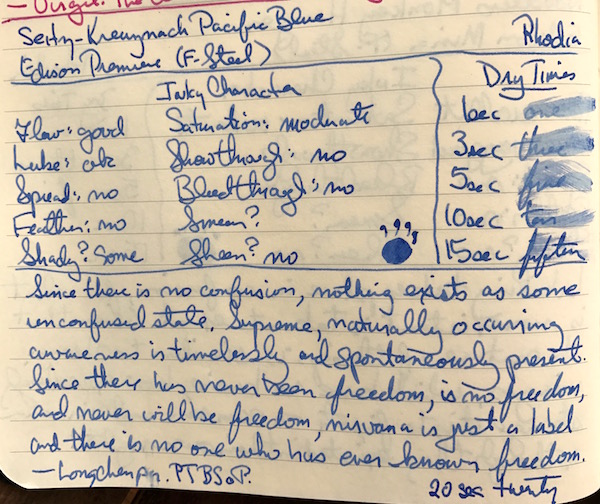 — Virgil. The
Seitz-Kreuznach Pacific Blue
Rhodia
Edison Premiere (F-Steel)
Dry Times
Inky Character
Flow: good Saturation: moderate
Lube: ok Showthrough: no
Spread: no Bleedthrough: no
Feather: no Smear?
Shady? Some Sheen? no
1sec one
3sec three
5sec five
10sec ten
15sec fifteen
Since there is no confusion, nothing exists as some
unconfused state. Supreme, naturally occuring
awareness is timelessly and spontaneously present.
Since there has never been freedom, is no freedom,
and never will be freedom, nirvana is just a label
and there is no one who has ever known freedom.
—Longchenpa. PTBSoP.
20 sec twenty